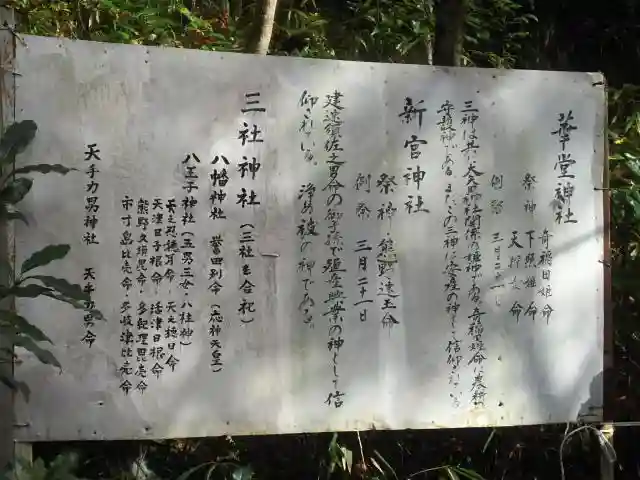 華堂神社
祭神 奇稲田姫命
下照姫命
天探女命
例祭 三月二十一日
三神は共に大 神社 関係の姫神である。奇稲田姫命は農耕の
守護神である。またこの三神は安産の神として信仰されている。
新宮神社
祭神 熊野速玉命
例祭 三月二十一日
建速須佐之男命の御子孫で殖産興業の神として信
仰されている。浄め祓の神である。
三社神社(三社を合祀)
八幡神社 誉田別命(応神天皇)
八王子神社(五男三女・八柱神)
天之忍穂耳命・天之穂日命
天津日子根命・活津日子根命
熊野久須毘命・多紀理毘売命
市寸島比売命・多岐津比売命
天手力男神社 天手力男命